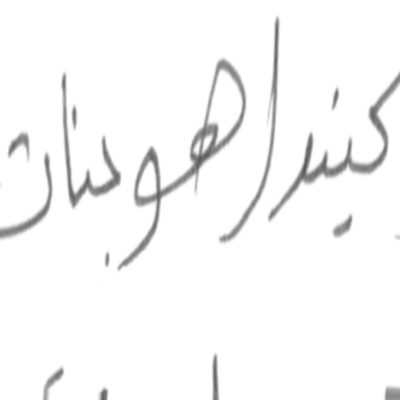 كيندا هوجنات